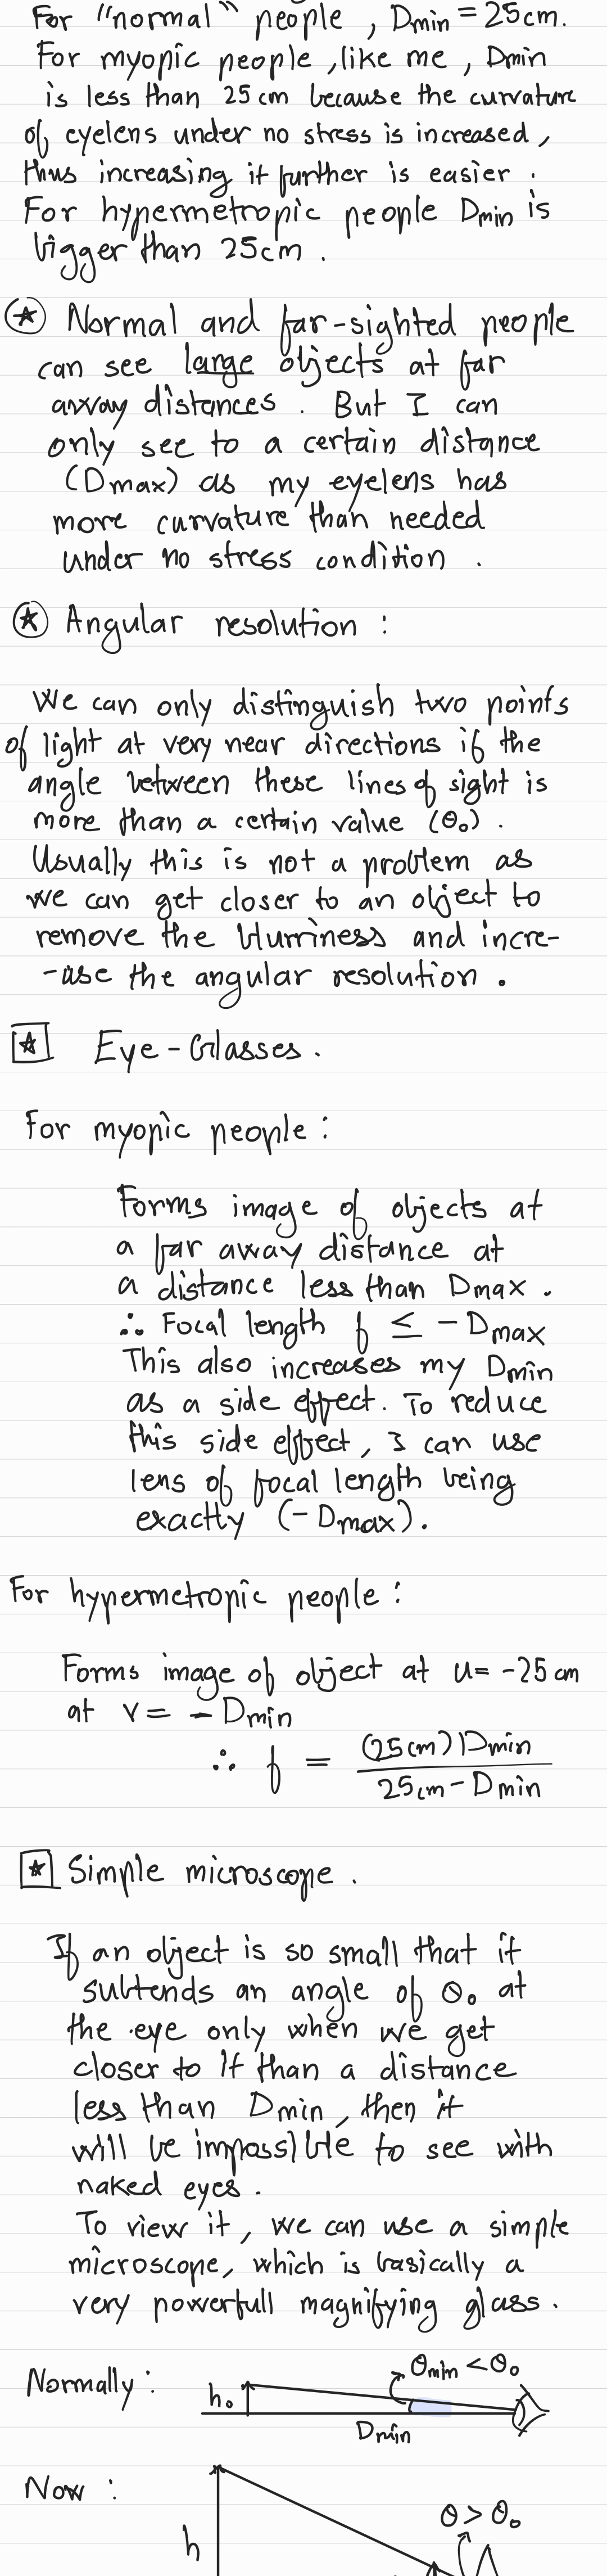 For "normal" people, Dmin = 25cm.
For myopic people, like me, Dmin
is less than 25 cm because the curvature
of eyelens under no stress is increased,
thus increasing it further is easier.
For hypermetropic people Dmin is
bigger than 25cm.
⍟ Normal and far-sighted people
can see large objects at far
away distances. But I can
only see to a certain distance
(Dmax) as my eyelens has
more curvature than needed
under no stress condition.
⍟ Angular resolution:
We can only distinguish two points
of light at very near directions if the
angle between these lines of sight is
more than a certain value (θ₀).
Usually this is not a problem as
we can get closer to an object to
remove the blurriness and incre-
-ase the angular resolution.
⍟ Eye-Glasses.
For myopic people:
Forms image of objects at
a far away distance at
a distance less than Dmax.
∴ Focal length f ≤ -Dmax
This also increases my Dmin
as a side effect. To reduce
this side effect, I can use
lens of focal length being
exactly (-Dmax).
For hypermetropic people:
Forms image of object at u = -25 cm
at v = -Dmin
∴ f = (25cm)(Dmin) / (25cm - Dmin)
⍟ Simple microscope.
If an object is so small that it
subtends an angle of θ₀ at
the eye only when we get
closer to it than a distance
less than Dmin, then it
will be impossible to see with
naked eyes.
To view it, we can use a simple
microscope, which is basically a
very powerfull magnifying glass.
Normally: h₀ θmin < θ₀
Dmin
Now: θ > θ₀
h